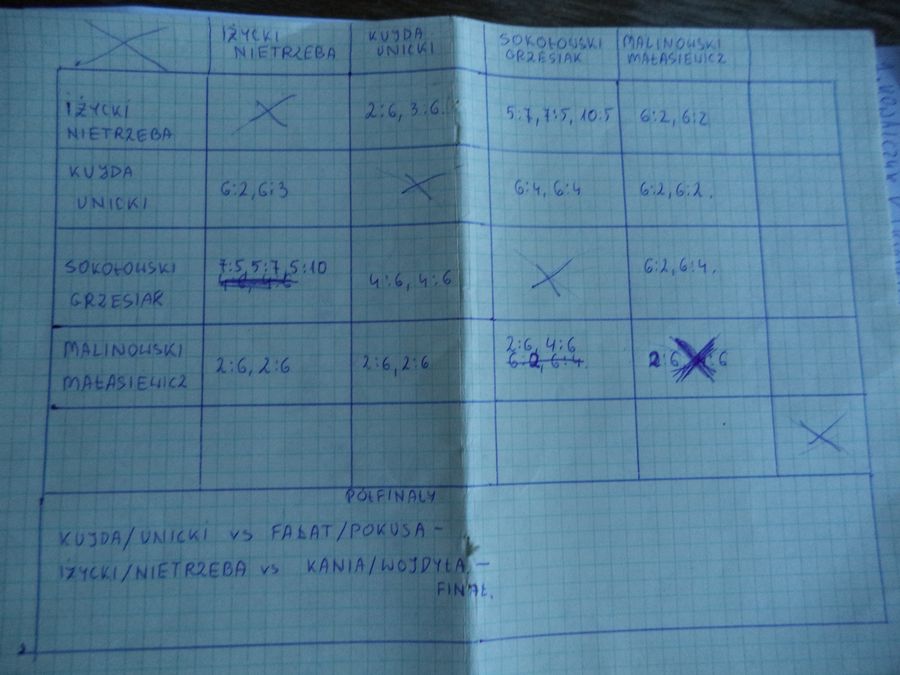 IŻYCKI NIETRZEBA KUJDA UNICKI SOKOŁOWSKI GRZESIAK MALINOWSKI MAŁASIEWICZ
IŻYCKI NIETRZEBA 2:6, 3:6. 5:7, 7:5, 10:5 6:2, 6:2
KUJDA UNICKI 6:2, 6:3 6:4, 6:4 6:2, 6:2.
SOKOŁOWSKI GRZESIAK 7:5, 5:7, 5:10 4:6, 4:6 6:2, 6:4.
MALINOWSKI MAŁASIEWICZ 2:6, 2:6 2:6, 2:6 2:6, 4:6 6:2, 6:4 2:6
PÓŁFINAŁY
KUJDA/UNICKI vs FAŁAT/POKUSA -
IŻYCKI/NIETRZEBA vs KANIA/WOJDYŁA -
FINAŁ.